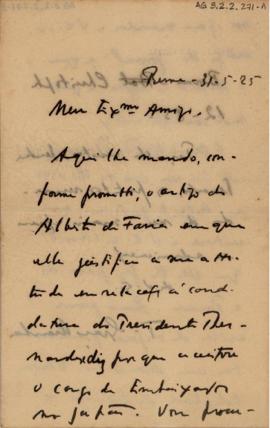 AG 3.2.2.271-A
Berna - 31-5-25
Meu Exmo Amigo.
Aqui lhe mando, con-
forme prometti, o artigo do
Alberto de Faria em que
elle justifica a sua atti-
tude em relação á candi-
datura do Presidente Ber-
nardes diz por que aceitou
o cargo de Embaixador
no Japão. Vou